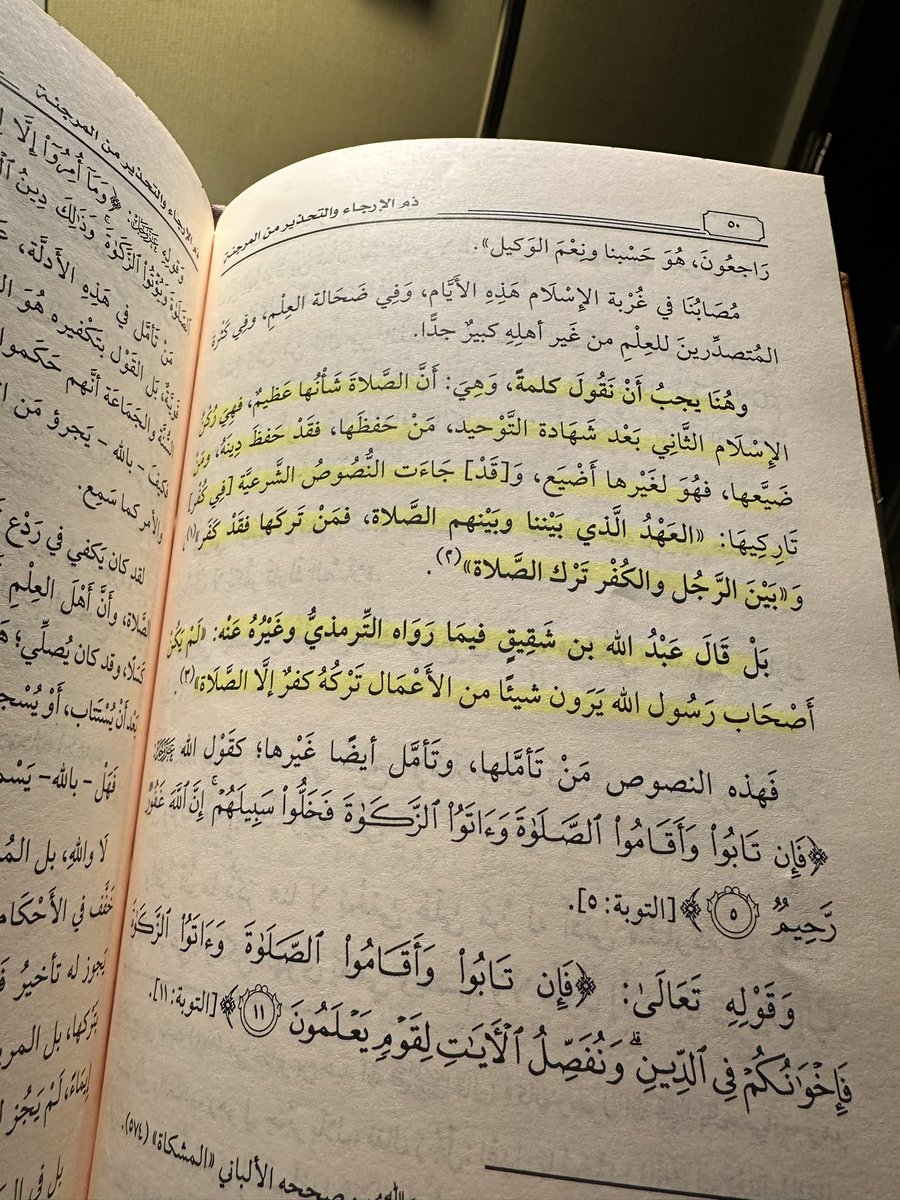 ٥٠
ذم الإرجاء والتحذير من المرجئة
رَاجعُونَ، هُوَ حَسْبنا ونِعْمَ الوَكيل».
مُصَابُنَا في غُرْبة الإِسْلَام هَذِهِ الأَيَّام، وَفِي ضَحَالة العِلْمِ، وَفي كَثْرة
المُتصدِّرينَ للعِلْمِ من غَير أهلِهِ كبيرٌ جدًّا.
وهُنَا يجبُ أَنْ نَقُولَ كلمةً، وَهِيَ: أَنَّ الصَّلاةَ شَأْنُها عَظيمٌ، فهِيَ رُكْنُ
الإِسْلَام الثَّاني بَعْد شَهَادة التَّوْحيد، مَنْ حَفظَها، فقَدْ حَفظَ دِينَهُ، ومَنْ
ضَيَّعها، فهُوَ لغَيْرها أَضْيَع، وَ[قَدْ] جَاءَت النُّصُوصُ الشَّرعيَّة [فِي كُفْر]
تَارِكِيهَا: «العَهْدُ الَّذي بَيْننا وبَيْنهم الصَّلاة، فمَنْ تَركَها فقَدْ كَفَر»(١)،
وَ«بَيْنَ الرَّجُل والكُفْر تَرْك الصَّلاة»(٢).
بَلْ قَالَ عَبْدُ الله بن شَقِيقٍ فيمَا رَوَاه التِّرمذيُّ وغَيْرُهُ عَنْه: «لَمْ يَكُنْ
أَصْحَاب رَسُول الله يَرَون شيئًا من الأَعْمَال تَرْكُهُ كفرٌ إلَّا الصَّلَاة»(٣).
فَهذه النصوص مَنْ تَأمَّلها، وتَأمَّل أيضًا غَيْرها؛ كقَوْل الله عَزَّوَجَلَّ
﴿فَإِن تَابُوا۟ وَأَقَامُوا۟ ٱلصَّلَوٰةَ وَءَاتَوُا۟ ٱلزَّكَوٰةَ فَخَلُّوا۟ سَبِيلَهُمْ ۚ إِنَّ ٱللَّهَ غَفُورٌ
رَّحِيمٌ ۝٥﴾ [التوبة: ٥].
وَقَوْلِهِ تَعَالَىٰ: ﴿فَإِن تَابُوا۟ وَأَقَامُوا۟ ٱلصَّلَوٰةَ وَءَاتَوُا۟ ٱلزَّكَوٰةَ
فَإِخْوَٰنُكُمْ فِى ٱلدِّينِ ۗ وَنُفَصِّلُ ٱلْـَٔايَـٰتِ لِقَوْمٍ يَعْلَمُونَ ۝١١﴾ [التوبة: ١١].
صححه الألباني «المشكاة» (٥٧٤).
ذم الإرجاء والتحذير من المرجئة
وَقَولِهِ عَزَّوَجَلَّ: ﴿وَمَآ أُمِرُوٓا۟ إِلَّا
ٱلصَّلَوٰةَ وَيُؤْتُوا۟ ٱلزَّكَوٰةَ ۚ وَذَٰلِكَ دِينُ
مَنْ تَأمَّل في هَذِهِ الأَدلَّة،
بَل القَوْل بتَكْفيره هُوَ
والجَمَاعَة أنَّهم حَكَموا
فكيفَ - بالله - يَجرؤ مَن
والأمر كما سَمع.
لقد كان يَكفي في رَدْع
الصَّلاة، وأَنَّ أَهْلَ العِلْمِ
كَسَلًا، وقد كان يُصلِّي؛
بَعْد أَنْ يُسْتتاب، أَوْ
فَهَلْ - بالله -
لَا والله، بل
خفَّف في الأَحْكام
يَجوز له تأخيرُ
يَتْركها، بل
إيمَاءً، لَمْ يَجُز
بل في